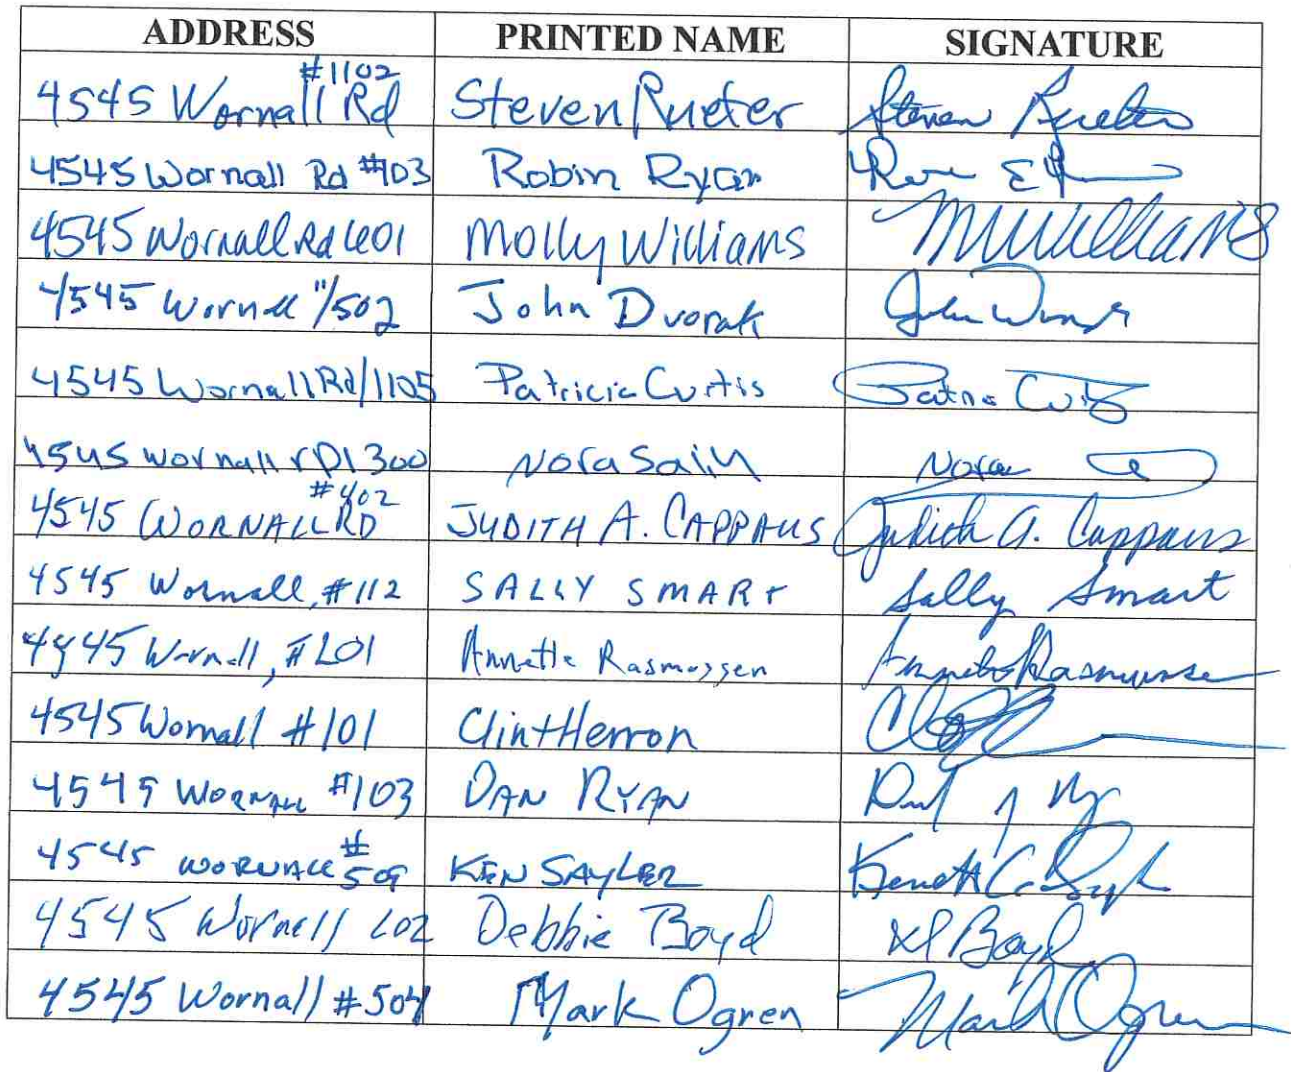 ADDRESS PRINTED NAME SIGNATURE
#1102
4545 Wornall Rd Steven Rueter Steven Rueter
4545 Wornall Rd #103 Robin Ryan
4545 Wornall Rd 601 Molly Williams MWilliams
4545 Wornall /502 John Dvorak John
4545 Wornall Rd/1105 Patricia Curtis
4545 wornall rD 1300 Nora Nora
#402
4545 WORNALL RD JUDITH A. CAPPAUS Judith A. Cappaus
4545 Wornall, #112 SALLY SMART Sally Smart
4545 Wornall, #201 Annette Rasmussen Annette Rasmussen
4545 Wornall #101 Clint Herron
4545 WORNALL #103 DAN RYAN
4545 WORNALL #509 KEN SAYLER Kenneth C.
4545 Wornall Debbie Boyd Boyd
4545 Wornall #504 Mark Ogren Mark Ogren